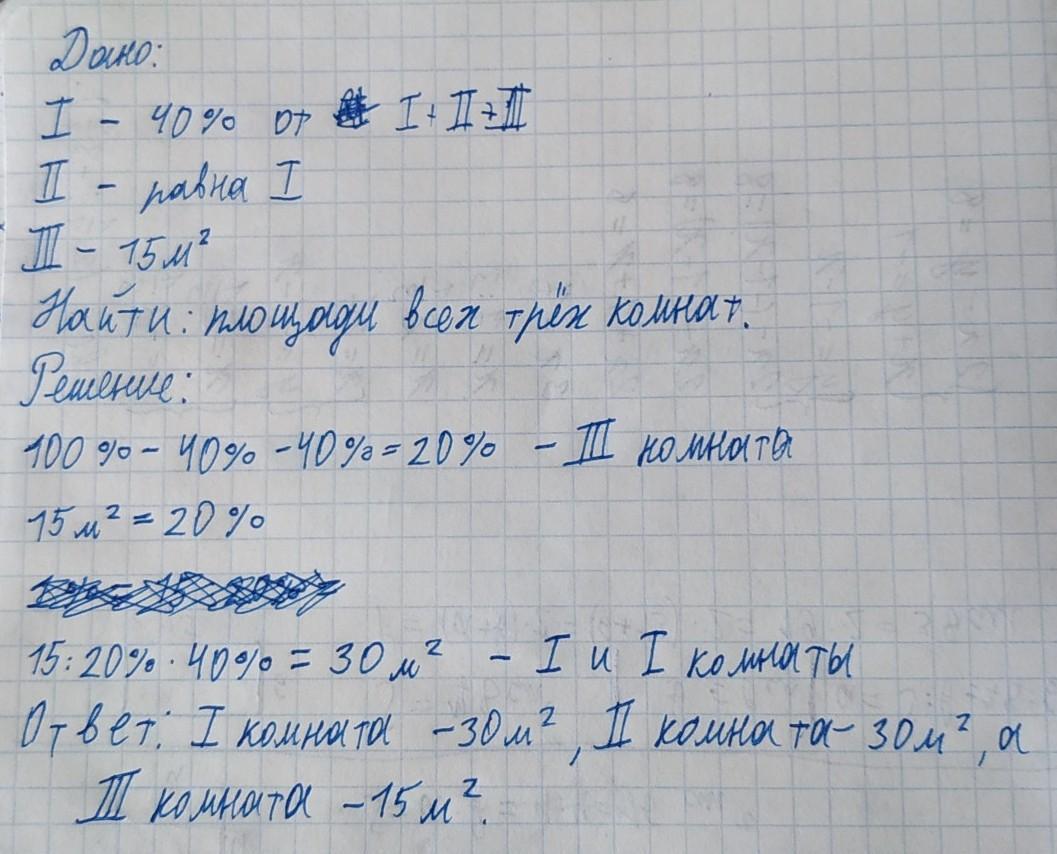 Дано:
I - 40% от I + II + III
II - равна I
III - 15м²
Найти: площади всех трёх комнат.
Решение:
100% - 40% - 40% = 20% - III комната
15м² = 20%
15 : 20% · 40% = 30м² - I и I комнаты
Ответ: I комната - 30м², II комната - 30м², а
III комната - 15м².